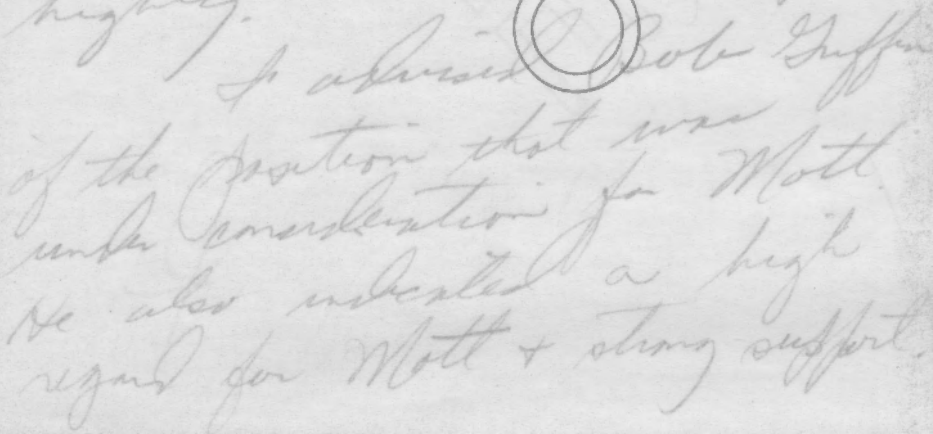 highly.
I advised Bob Griffin
of the position that was
under consideration for Mott.
He also indicated a high
regard for Mott + strong support.